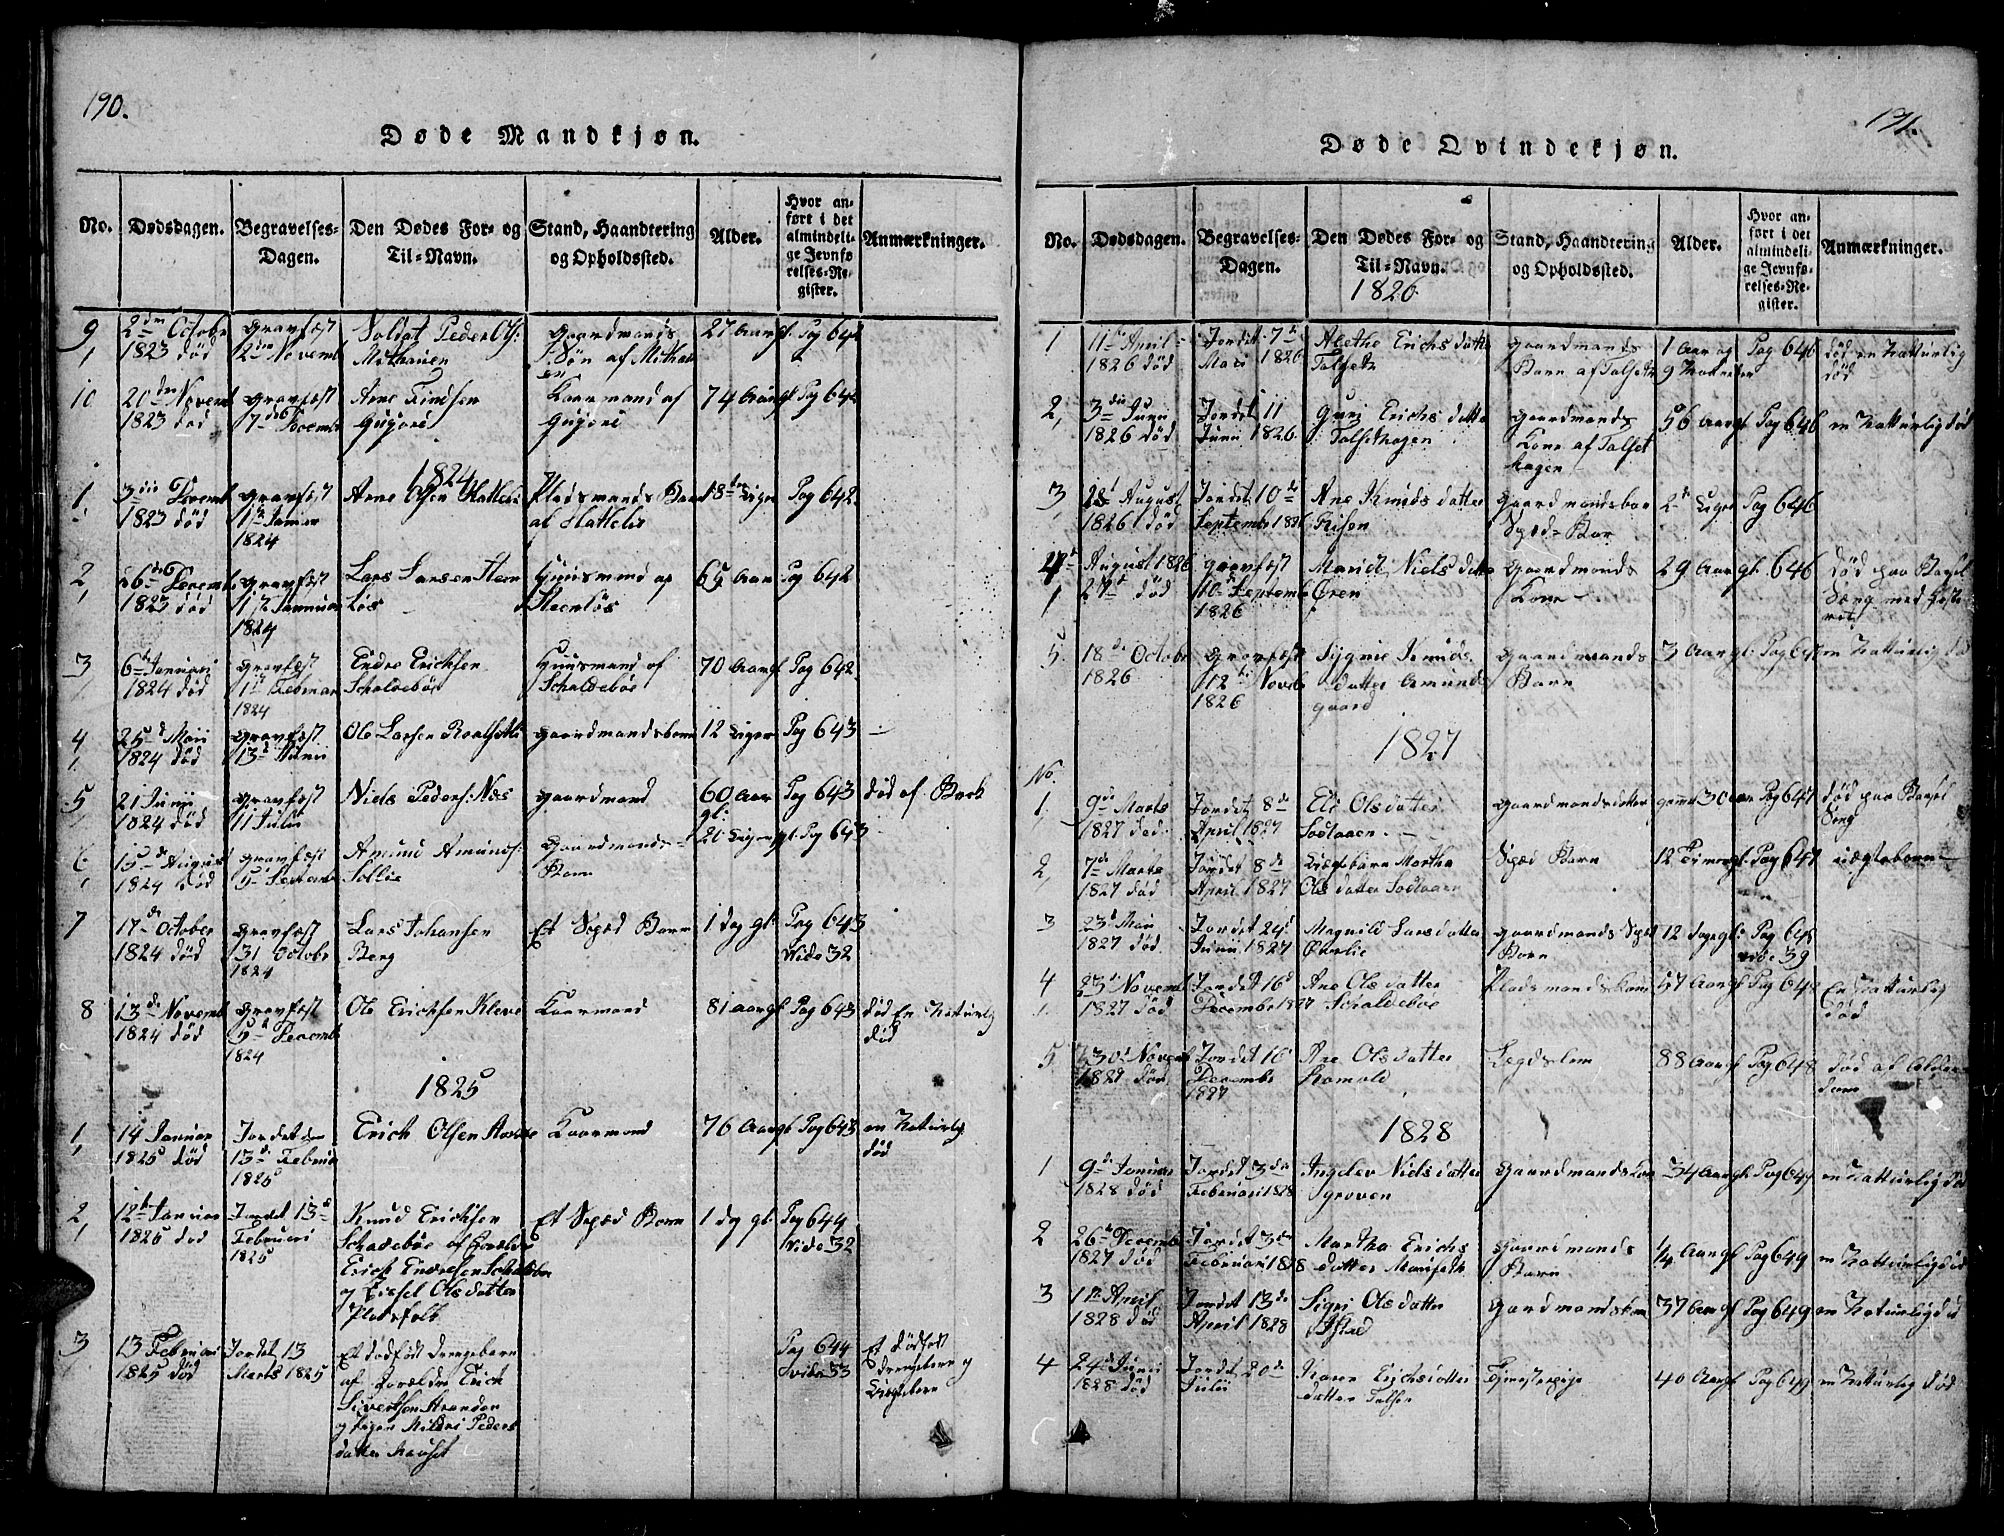 190.
Døde Mandkjøn.
No. Dødsdagen. Begravelses-Dagen. Den Dødes For- og Til-Navn. Stand, Haandtering og Opholdssted. Alder. Hvor anført i det almindelige Jevnførelses-Register. Anmærkninger.
9 2den Octobr gravfæst Soldat Peder Ols: gaardmands 27 Aar gl. Pag 642
1 1823 død 2den Novemb Søn af
10 20de Novemb gravfæst Arne Kaarmand af 74 Aar gl Pag 642
1823 død 7de Decemb
1824
1 3die Decemb. gravfæst Arne Olsen Pladsmands Barn 18 Uger Pag 642.
1823 død 1 Januar af
1824
2 26de Decemb. gravfæst Lars Larsen Steen Huusmand af 65 Aar Pag 642
1823 død Januar løs Steenløs
1824
3 6te Januari gravfæst Endre Erichsen Huusmand af 70 Aar gl Pag 642
1824 død 1 Februar Schaldebøe Schaldebøe
1824
4 25de Maii gravfæst Ole Larsen gaardmandsbarn 12 Uger Pag 643
1824 død 13de Junii
5 21 Junii gravfæst Niels Peders: Næs gaardmand 60 Aar gl: Pag 643 død af
1824 død 11 Julii
6 15de August gravfæst Amund Amunds: gaardmands 20 Uger gl. Pag 643
1824 død 5 Septemb Sollie Barn
7 17de October gravfæst Lars Johansen Et Spæd Barn 1 dag gl. Pag 643
1824 død 31 Octobr Berg Vide 32
1824
8 13de Novemb gravfæst Ole Erichsen Kleve Kaarmand 81 aar gl Pag 643 død En Naturlig
1824 død 5 Decemb død
1824
1825
1 14 Januar Jordet den Erich Olsen Kaarmand 76 Aar gl Pag 643 en Naturlig
1825 død 13de Februar død
1825
2 12te Januar Jordet 13de Knud Erichsen Et Spæd Barn 1 dag gl. Pag 644
1825 død Februari Schadebøe af Forældre Vide 32
1825 Erich Endresen Schaldebøe
og Sissel Olsdatter
Pladsfolk
3 13 Februari Jordet 13 Et dødfødt drengebarn Pag 644 Et dødfødt
1825 død Marts 1825 af Forældre Erich vide 33 drengebarn og
Sivertsen Uægtebarn
og Pigen Mildri Peders
datter
191.
Døde Qvindekjøn.
No. Dødsdagen. Begravelses-Dagen. Den Dødes For- og Til-Navn. Stand, Haandtering og Opholdssted. Alder. Hvor anført i det almindelige Jevnførelses-Register. Anmærkninger.
1826
1 11te April Jordet 7de Alethe Erichsdatter gaardmands 1 Aar og Pag 646 død en Naturlig
1826 død Maii 1826 Talseth Barn af Talseth 9 Maaneder død
2 3die Junii Jordet 11 Guri Erichsdatter gaardmands 56 Aar gl. Pag 646 en Naturlig død
1826 død Junii 1826 Talsethagen Kone af Talset
hagen
3 28 August Jordet 10de Ane Knudsdatter gaardmandsbar 2 Uger Pag 646
1826 død September 1826 Spæd-Bar
4 August 1826 gravfæst Marit Nielsdatter gaardmands 29 Aar gl. 646 Død paa Barsel
1 27de død 10de Septemb Øren Kone Seng med
1826
5. 18de Octobr gravfæst Sygnie Knuds gaardmands 3 Aar gl. Pag 646 en Naturlig død
1826 12 Noveb datter Amunds Barn
1826 gaard
1827
No.
1 9de Marts Jordet 8de Eli Olsdatter gaardmandsdatter 30 aar Pag 647 død paa Barsel
1827 død April 1827 Seng
2 7de Marts Jordet 8de Uægtebarn Martha Spæd Barn 12 Timer gl. Pag 647 uægtebarn
1827 død April 1827 Olsdatter
3 23de Maii Jordet 24de Magnild Larsdatter gaardmands Spæd 12 dage gl: Pag 648
1827 død Junii 1827 Barn vide 39
4 23de Novemb Jordet 16de Ane Olsdatter Pladsmandskone 57 Aar gl Pag 648 En Naturlig
1827 død December 1827 Schaldebøe død
5 30 Novemb Jordet 16 Ane Olsdatter Legdslem 88 Aar gl Pag 648 Død af Alder
1827 død Decembr dom
1827
1828
1 9de Januar Jordet 3de Ingeler Nielsdatter gaardmandskone 34 Aar gl Pag 649 en Naturlig død
1828 død Februari 1828
2 26de Decemb Jordet 3de Martha Erichs gaardmands 1/4 Aar gl Pag 649 en Naturlig død
1827 død Februari 1828 datter Barn
3 1te April Jordet 13de Sigri Olsdatter gaardmandskone 37 Aar gl Pag 649 en Naturlig død
1828 død April 1828
4 24de Junii Jordet 20de Karen Erichsdatter Tjenestepige 40 Aar gl Pag 649 en Naturlig død
1828 død Julii datter